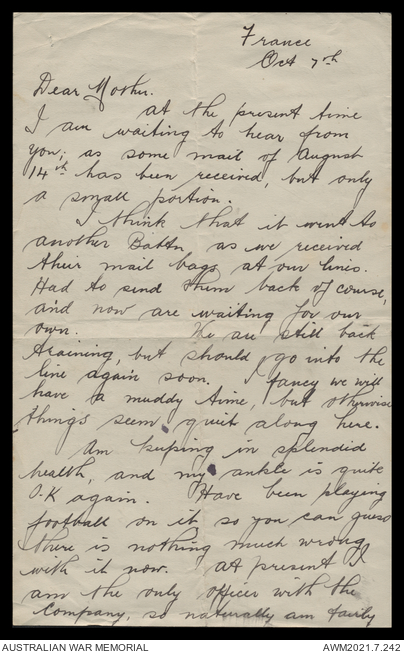 France
Oct 7th
Dear Mother.
at the present time
I am waiting to hear from
you; as some mail of August
14th has been received, but only
a small portion.
I think that it went to
another Battn as we received
their mail bags at our lines.
Had to send them back of course,
and now are waiting for our
own. We are still back
training, but should go into the
line again soon. I fancy we will
have a muddy time, but otherwise
things seem quit along here.
Am keeping in splendid
health, and my ankle is quite
O.K again. Have been playing
football on it, so you can guess
there is nothing much wrong
with it now. At present I
am the only officer with the
Company, so naturally am fairly
AUSTRALIAN WAR MEMORIAL
AWM2021.7.242